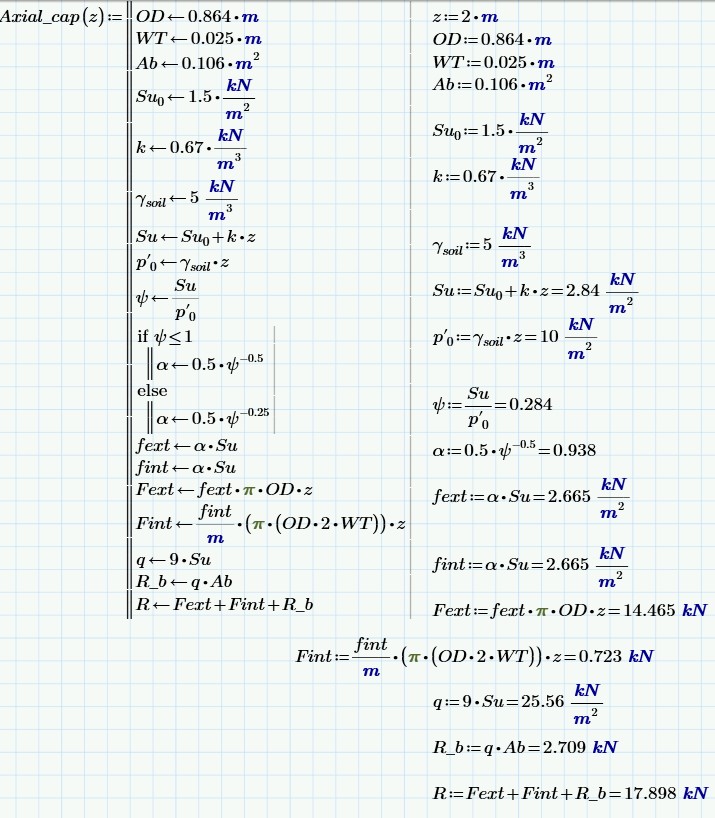 Axial_cap(z):= OD←0.864•m
WT←0.025•m
Ab←0.106•m²
Su₀←1.5•kN/m²
k←0.67•kN/m³
γsoil←5 kN/m³
Su←Su₀+k•z
p′₀←γsoil•z
ψ←Su/p′₀
if ψ≤1
α←0.5•ψ^−0.5
else
α←0.5•ψ^−0.25
fext←α•Su
fint←α•Su
Fext←fext•π•OD•z
Fint←fint/m•(π•(OD•2•WT))•z
q←9•Su
R_b←q•Ab
R←Fext+Fint+R_b
z:=2•m
OD:=0.864•m
WT:=0.025•m
Ab:=0.106•m²
Su₀:=1.5•kN/m²
k:=0.67•kN/m³
γsoil:=5 kN/m³
Su:=Su₀+k•z=2.84 kN/m²
p′₀:=γsoil•z=10 kN/m²
ψ:=Su/p′₀=0.284
α:=0.5•ψ^−0.5=0.938
fext:=α•Su=2.665 kN/m²
fint:=α•Su=2.665 kN/m²
Fext:=fext•π•OD•z=14.465 kN
Fint:=fint/m•(π•(OD•2•WT))•z=0.723 kN
q:=9•Su=25.56 kN/m²
R_b:=q•Ab=2.709 kN
R:=Fext+Fint+R_b=17.898 kN